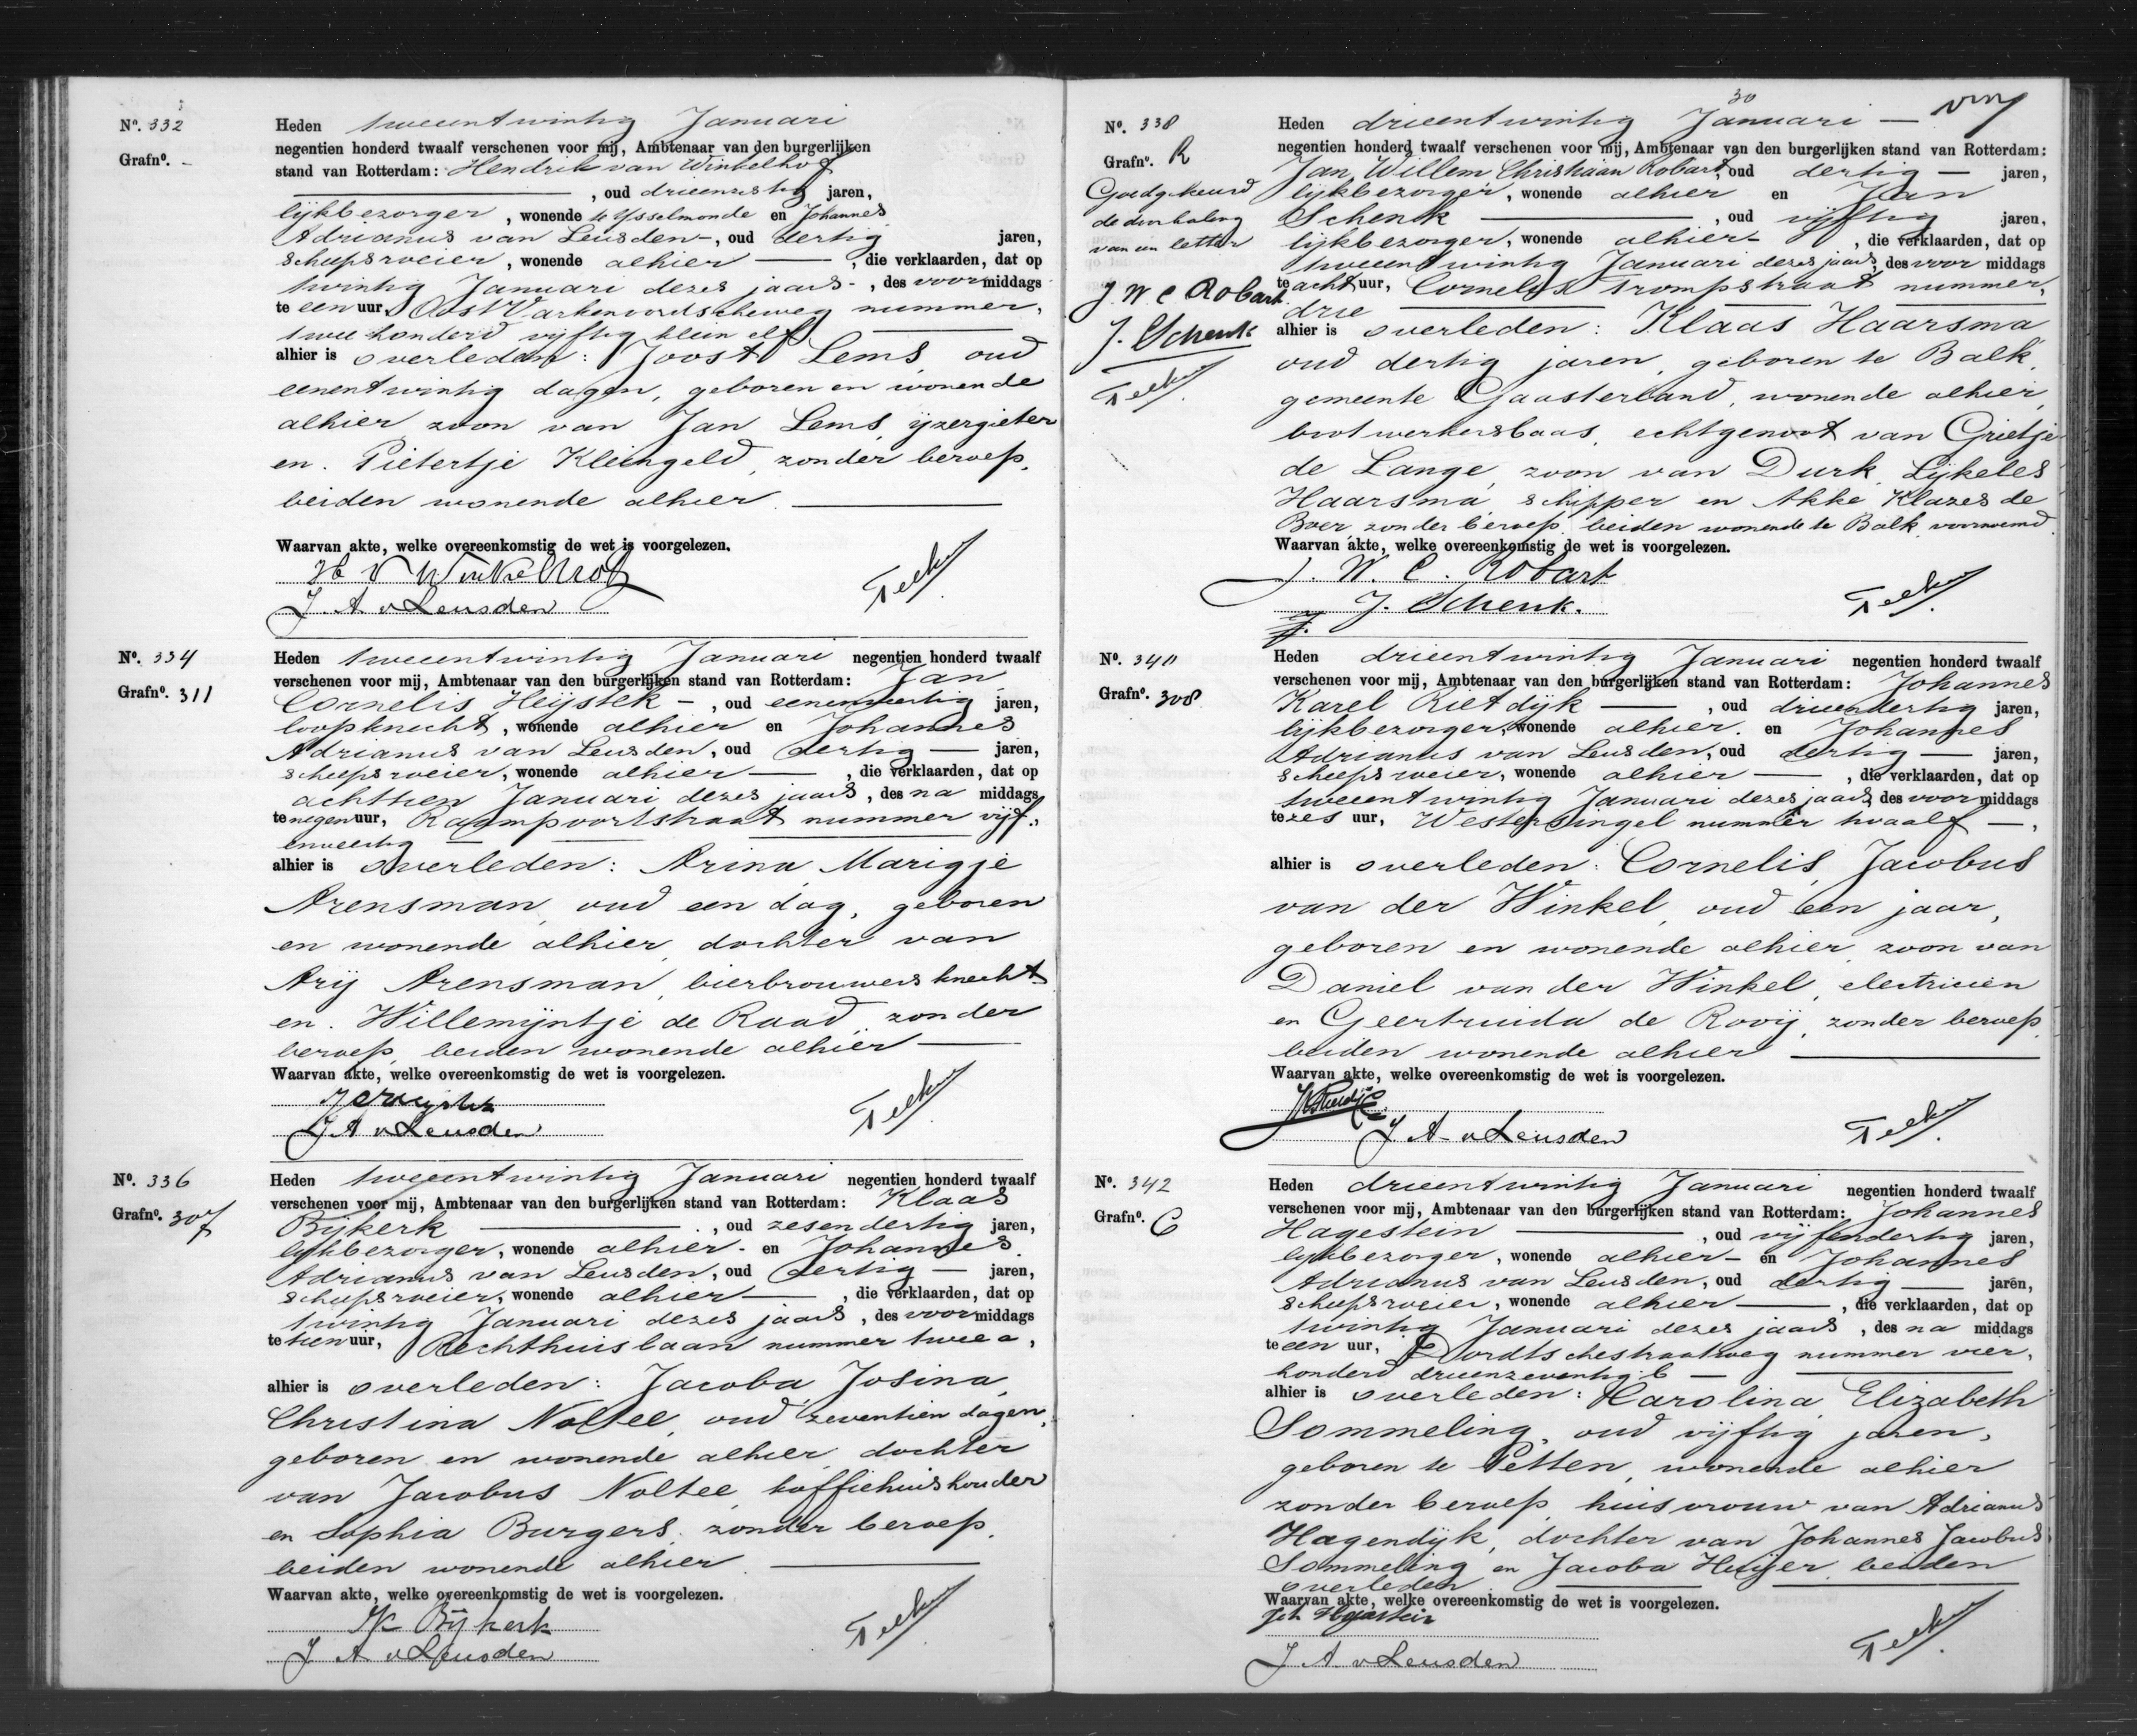 Nº. 332
Grafnº. -
Heden tweeentwintig Januari
negentien honderd twaalf verschenen voor mij, Ambtenaar van den burgerlijken
stand van Rotterdam: Hendrik van Winkelhof
, oud drieenzestig jaren,
lijkbezorger, wonende te IJsselmonde en Johannes
Adrianus van Leusden -, oud dertig jaren,
scheepsroeier, wonende alhier —, die verklaarden, dat op
twintig Januari dezes jaars -, des voormiddags
te een uur, Oost Varkenoordscheweg nummer
twee honderd vijftig klein elf
alhier is overleden: Joost Lems, oud
eenentwintig dagen, geboren en wonende
alhier zoon van Jan Lems, ijzergieter
en Pietertje Kleingeld, zonder beroep,
beiden wonende alhier.
Waarvan akte, welke overeenkomstig de wet is voorgelezen.
H v Winkelhof
J. A. v Leusden
Nº. 334
Grafnº. 311
Heden tweeentwintig Januari negentien honderd twaalf
verschenen voor mij, Ambtenaar van den burgerlijken stand van Rotterdam: Jan
Cornelis Heijstek -, oud eenenveertig jaren,
loopknecht, wonende alhier en Johannes
Adrianus van Leusden, oud dertig — jaren,
scheepsroeier, wonende alhier —, die verklaarden, dat op
achttien Januari dezes jaars, des na middags
te negen uur, Raampoortstraat nummer vijf
enveertig
alhier is overleden: Arina Marigje
Arensman, oud een dag, geboren
en wonende alhier, dochter van
Arij Arensman, bierbrouwersknecht
en Willemijntje de Raad, zonder
beroep, beiden wonende alhier —
Waarvan akte, welke overeenkomstig de wet is voorgelezen.
J C Heijstek
J A v Leusden
Nº. 336
Grafnº. 307
Heden tweeentwintig Januari negentien honderd twaalf
verschenen voor mij, Ambtenaar van den burgerlijken stand van Rotterdam: Klaas
Bijkerk —, oud zesendertig jaren,
lijkbezorger, wonende alhier - en Johannes
Adrianus van Leusden, oud dertig — jaren,
scheepsroeier, wonende alhier —, die verklaarden, dat op
twintig Januari dezes jaars, des voormiddags
te tien uur, Rechthuislaan nummer twee a,
alhier is overleden: Jacoba Josina
Christina Noltee, oud zeventien dagen,
geboren en wonende alhier, dochter
van Jacobus Noltee, koffiehuishouder
en Sophia Burgers, zonder beroep,
beiden wonende alhier.
Waarvan akte, welke overeenkomstig de wet is voorgelezen.
K Bijkerk
J A v Leusden
30
Nº. 338
Grafnº. R
Goedgekeurd
de doorhaling
van een letter
J W C Robart
J. Schenk
Heden drieentwintig Januari —
negentien honderd twaalf verschenen voor mij, Ambtenaar van den burgerlijken stand van Rotterdam:
Jan Willem Christiaan Robart, oud dertig — jaren,
lijkbezorger, wonende alhier en Jan
Schenk —, oud vijftig jaren,
lijkbezorger, wonende alhier -, die verklaarden, dat op
tweeentwintig Januari dezes jaars, des voor middags
te acht uur, Cornelis Trompstraat nummer
drie
alhier is overleden: Klaas Haarsma
oud dertig jaren, geboren te Balk,
gemeente Gaasterland, wonende alhier,
bootwerkersbaas, echtgenoot van Grietje
de Lange, zoon van Durk Lijkeles
Haarsma, schipper en Akke Klazes de
Boer, zonder beroep, beiden wonende te Balk, voornoemd.
Waarvan akte, welke overeenkomstig de wet is voorgelezen.
J. W. C. Robart
J. Schenk.
Nº. 340
Grafnº. 308
Heden drieentwintig Januari negentien honderd twaalf
verschenen voor mij, Ambtenaar van den burgerlijken stand van Rotterdam: Johannes
Karel Rietdijk —, oud drieendertig jaren,
lijkbezorger, wonende alhier. en Johannes
Adrianus van Leusden, oud dertig — jaren,
scheepsroeier, wonende alhier —, die verklaarden, dat op
tweeentwintig Januari dezes jaars, des voor middags
te zes uur, Westersingel nummer twaalf —,
alhier is overleden: Cornelis Jacobus
van der Winkel, oud een jaar,
geboren en wonende alhier, zoon van
Daniel van der Winkel, electricien
en Geertruida de Rooij, zonder beroep,
beiden wonende alhier —
Waarvan akte, welke overeenkomstig de wet is voorgelezen.
J A v Leusden
Nº. 342
Grafnº. C
Heden drieentwintig Januari negentien honderd twaalf
verschenen voor mij, Ambtenaar van den burgerlijken stand van Rotterdam: Johannes
Hagestein —, oud vijfendertig jaren,
lijkbezorger, wonende alhier - en Johannes
Adrianus van Leusden, oud dertig — jaren,
scheepsroeier, wonende alhier —, die verklaarden, dat op
twintig Januari dezes jaars, des na middags
te een uur, Dordtschestraatweg nummer vier
honderd drieenzeventig b —
alhier is overleden: Karolina Elizabeth
Sommeling, oud vijftig jaren,
geboren te Petten, wonende alhier
zonder beroep, huisvrouw van Adrianus
Hagendijk, dochter van Johannes Jacobus
Sommeling en Jacoba Huijer, beiden
overleden
Waarvan akte, welke overeenkomstig de wet is voorgelezen.
Joh Hagestein
J. A. v Leusden